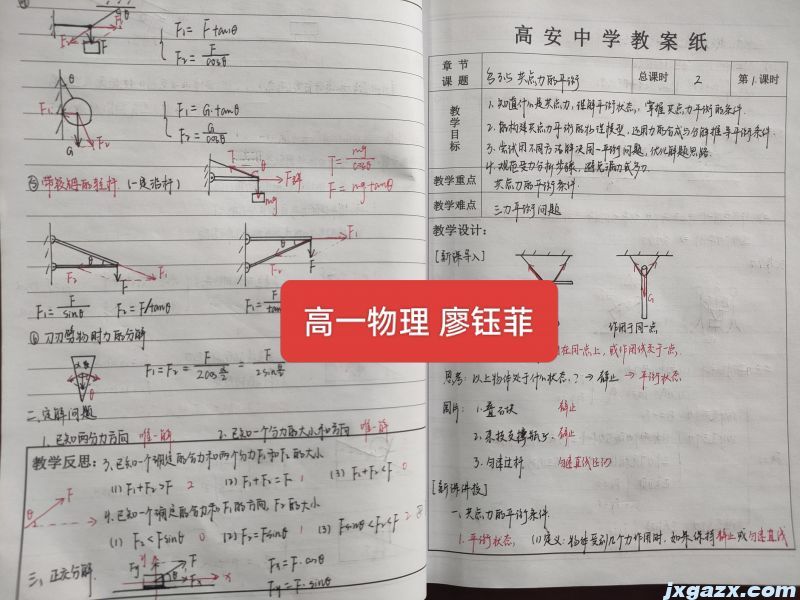 F₁ = Ftanθ
F₂ = F/cosθ
F₁ = G·tanθ
F₂ = G/cosθ
T = mg/cosθ
F = mg·tanθ
F₁ = F/sinθ F₂ = F/tanθ
F₁ = F₂ = F/2cos = F/2sin
二、定解问题
1. 已知两分力方向 唯一解 2. 已知一个分力的大小和方向 唯一解
教学反思: 3. 已知一个确定的合力和两个分力F₁和F₂的大小
(1) F₁+F₂>F 2 (2) F₁+F₂=F 1 (3) F₁+F₂<F 0
4. 已知一个确定的合力和F₁的方向, F₂的大小
(1) F₂<Fsinθ 0 (2) F₂=Fsinθ 1 (3) Fsinθ<F₂<F 2
三、正交分解
Fx = F·cosθ
Fy = F·sinθ
高安中学教案纸
章节课题 §3.5 共点力的平衡 总课时 2 第1课时
教学目标
1. 知道什么是共点力, 理解平衡状态, 掌握共点力平衡的条件.
2. 能构建共点力平衡的物理模型, 运用力的合成与分解推导平衡条件.
3. 尝试用不同方法解决同一平衡问题, 优化解题思路.
4. 规范受力分析步骤,
教学重点 共点力的平衡条件.
教学难点 三力平衡问题
教学设计:
[新课导入]
作用于同一点
在同一点上, 或作用线交于一点.
思考: 以上物体处于什么状态? → 静止 → 平衡状态
图片: 1. 叠石块 静止
2. 静止
3. 匀速直线运动
[新课讲授]
一、共点力的平衡条件
1. 平衡状态. (1) 定义: 物体受到几个力作用时, 如果保持静止或匀速直线
高一物理 廖钰菲
jxgazx.com